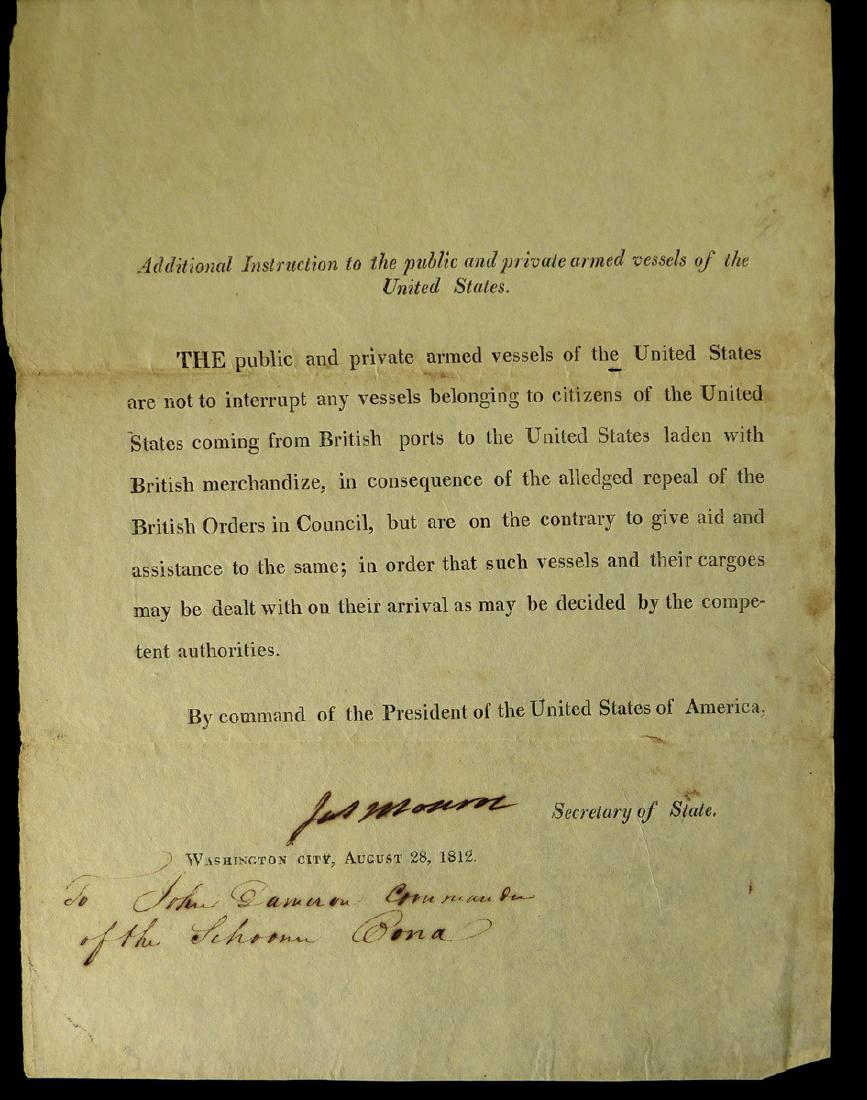 Additional Instruction to the public and private armed vessels of the
United States.
THE public and private armed vessels of the United States
are not to interrupt any vessels belonging to citizens of the United
States coming from British ports to the United States laden with
British merchandize, in consequence of the alledged repeal of the
British Orders in Council, but are on the contrary to give aid and
assistance to the same; in order that such vessels and their cargoes
may be dealt with on their arrival as may be decided by the compe-
tent authorities.
By command of the President of the United States of America.
Jas Monroe Secretary of State.
WASHINGTON CITY, AUGUST 28, 1812.
To John Dameron Commander
of the Schooner Bona